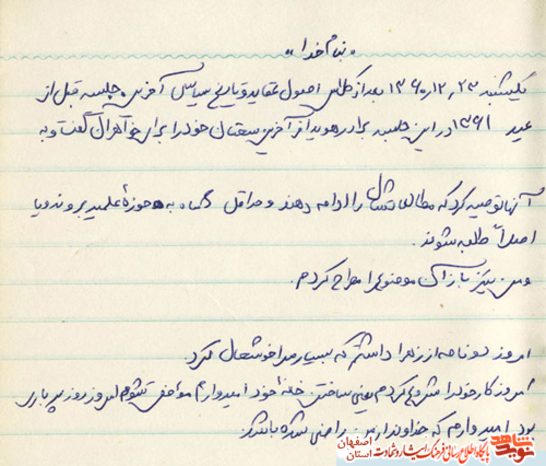 «بنام خدا»
یکشنبه ۱۳۶۰/۱۲/۲۳ بعد از کلاس اصول عقاید و تاریخ سیاسی آخرین جلسه قبل از
عید ۱۳۶۱ در این جلسه برادر رهویدا فر آخرین سخنان خود را برای خواهران گفت و به
آنها توصیه کرد که مطالعاتشان را ادامه دهند و حداقل ۶ ماه به حوزهٔ علمیه بروند و یا
اصلاً طلبه شوند.
ومن نیز باز آن موضوع را مطرح کردم.
امروز دو نامه از زهرا داشتم که بسیار مرا خوشحال کرد.
امروز کار خود را شروع کردم یعنی ساختن خانهٔ خود امیدوارم موفق شوم امروز روز پرباری
بود امیدوارم که خداوند از من راضی شده باشد.
نوید شاهد
پایگاه اطلاع رسانی فرهنگ ایثار و شهادت
استان اصفهان